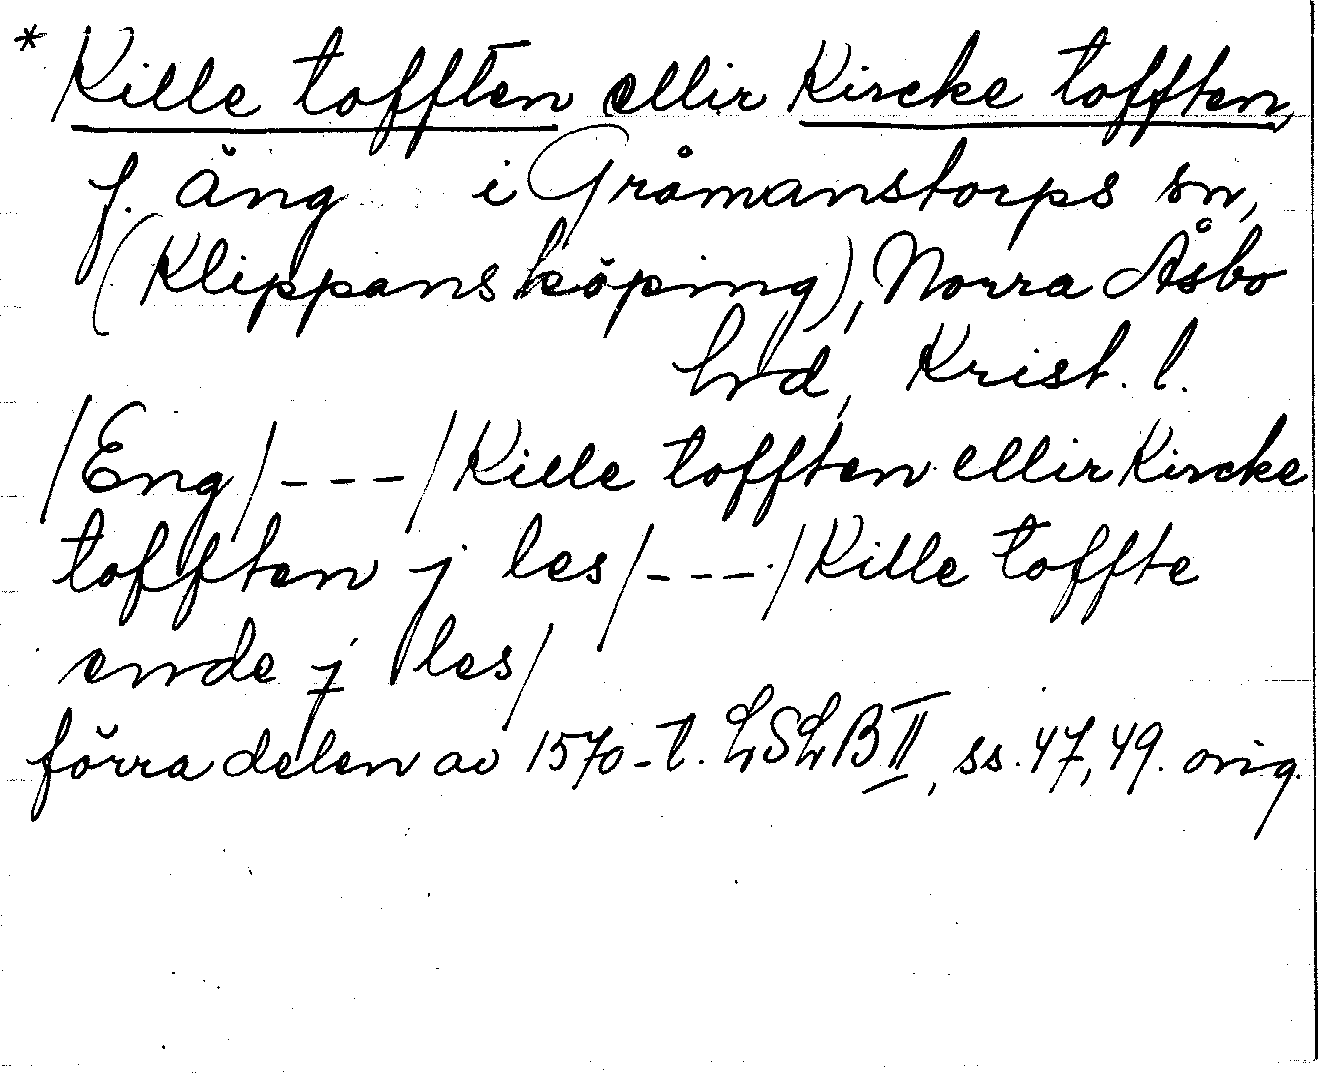 * Kille tofften ellir Kircke tofften,
f. äng i Gråmanstorps sn,
(Klippans köping), Norra Åsbo
hrd, Krist. l.
/Eng/---/Kille tofften ellir Kircke
tofften j les/---/Kille toffte
ende j les/
förra delen av 1570-t. LSLB II, ss. 47, 49. orig.